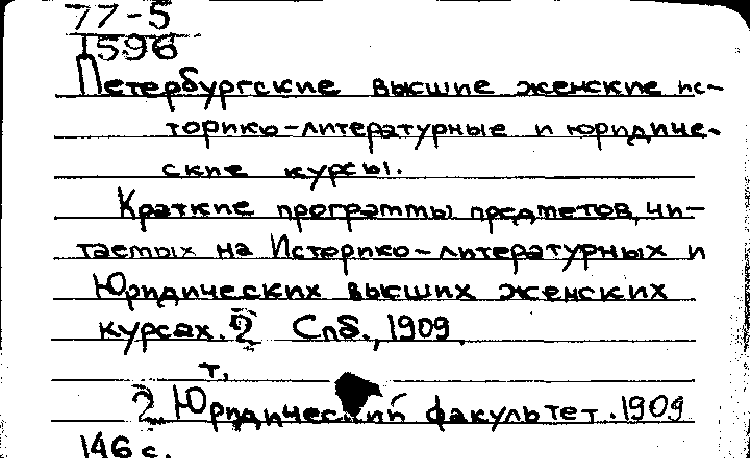 77-5
1596
Петербургские высшие женские ис-
торико-литературные и юридиче-
ские курсы.
Краткие программы предметов, чи-
таемых на Историко-литературных и
Юридических высших женских
курсах. 2 Спб., 1909.
т.
2 Юридический факультет. 1909
146 с.